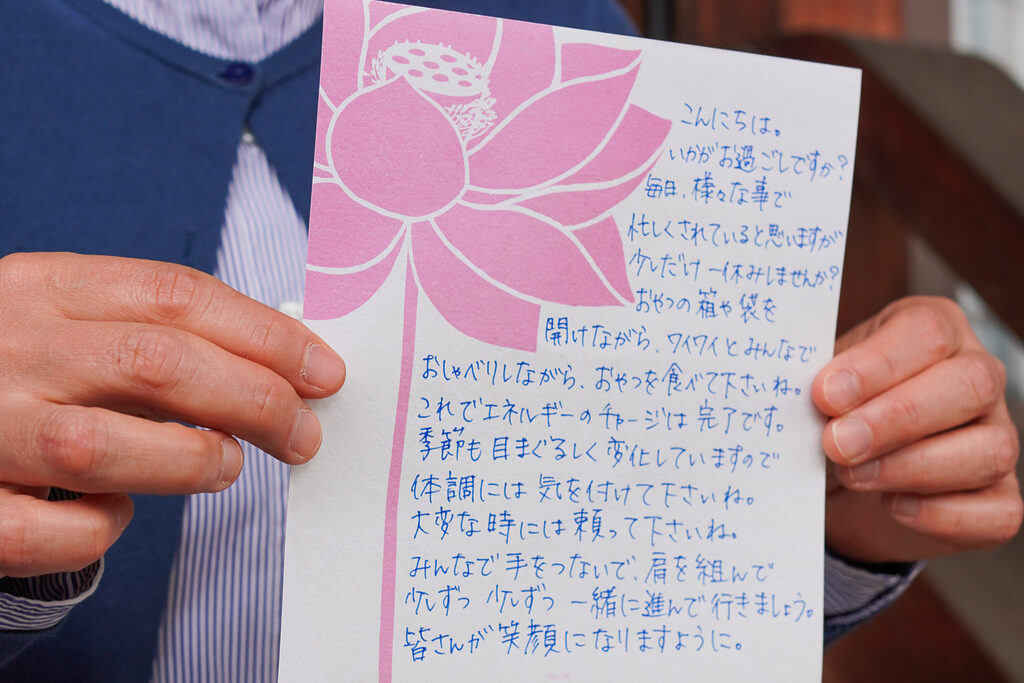 こんにちは。
いかがお過ごしですか?
毎日、様々な事で
忙しくされていると思いますが
少しだけ一休みしませんか?
おやつの箱や袋を
開けながら、ワイワイとみんなで
おしゃべりしながら、おやつを食べて下さいね。
これでエネルギーのチャージは完了です。
季節も目まぐるしく変化していますので
体調には気を付けて下さいね。
大変な時には頼って下さいね。
みんなで手をつないで、肩を組んで
少しずつ 少しずつ 一緒に進んで行きましょう。
皆さんが笑顔になりますように。